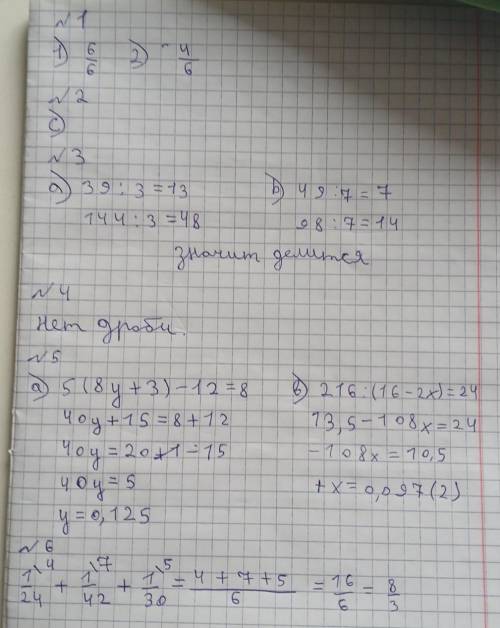 №1
1) 6/6 2) -4/6
№2
C)
№3
a) 39 : 3 = 13 b) 49 : 7 = 7
144 : 3 = 48 98 : 7 = 14
значит делится
№4
Нет дроби.
№5
a) 5(8y+3)-12=8 b) 216:(16-2x)=24
40y+15=8+12 13,5-108x=24
40y=20-15 -108x=10,5
40y=5 +x=0,097(2)
y=0,125
№6
1\4/24 + 1\7/42 + 1\5/30 = 4+7+5/6 = 16/6 = 8/3